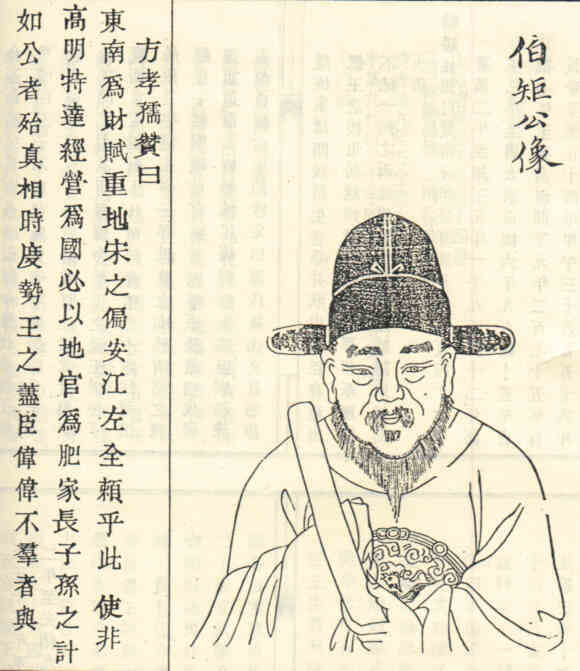 伯矩公像
方孝孺贊曰
東南爲財賦重地宋之偏安江左全頼乎此使非
高明特達經營爲國必以地官爲肥家長子孫之計
如公者殆真相時度勢王之藎臣偉偉不羣者與